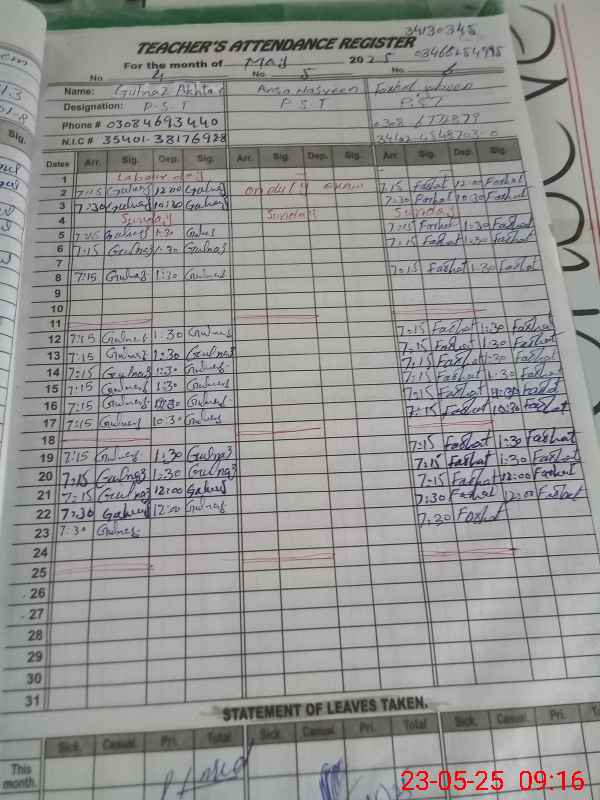 34130345
TEACHER'S ATTENDANCE REGISTER 03466254995
For the month of May 2025
No 4 No 5 No 6
Name: Gulnaz Akhtar Farhat
Designation: P.S.T P.S.T P.S.T
Phone # 03084693440 0308
N.I.C # 35401-38176928
Dates Arr. Sig. Dep. Sig. Arr. Sig. Dep. Sig. Arr. Sig. Dep. Sig.
1 Labour day
2 7:15 Gulnaz 12:00 Gulnaz on duty exam 7:15 Farhat 12:00 Farhat
3 7:30 Gulnaz 10:30 Gulnaz 7:30 Farhat 10:30 Farhat
4 Sunday Sunday Sunday
5 7:15 Gulnaz 1:30 Gulnaz 7:15 Farhat 1:30 Farhat
6 7:15 Gulnaz 1:30 Gulnaz 7:15 Farhat 1:30 Farhat
7
8 7:15 Gulnaz 1:30 Gulnaz 7:15 Farhat 1:30 Farhat
9
10
11
12 7:15 Gulnaz 1:30 Gulnaz 7:15 Farhat 1:30 Farhat
13 7:15 Gulnaz 1:30 Gulnaz 7:15 Farhat 1:30 Farhat
14 7:15 Gulnaz 1:30 Gulnaz 7:15 Farhat 1:30 Farhat
15 7:15 Gulnaz 1:30 Gulnaz 7:15 Farhat 1:30 Farhat
16 7:15 Gulnaz Gulnaz 7:15 Farhat Farhat
17 7:15 Gulnaz 10:30 Gulnaz 7:15 Farhat 10:30 Farhat
18
19 7:15 Gulnaz 1:30 Gulnaz 7:15 Farhat 1:30 Farhat
20 7:15 Gulnaz 1:30 Gulnaz 7:15 Farhat 1:30 Farhat
21 7:15 Gulnaz 12:00 Gulnaz 7:15 Farhat 12:00 Farhat
22 7:30 Gulnaz 12:00 Gulnaz 7:30 Farhat 12:00 Farhat
23 7:30 Gulnaz 7:30 Farhat
24
25
26
27
28
29
30
31
STATEMENT OF LEAVES TAKEN.
Sick. Casual. Pri. Total Sick. Casual. Pri. Total Sick. Casual. Pri.
This month.
23-05-25 09:16